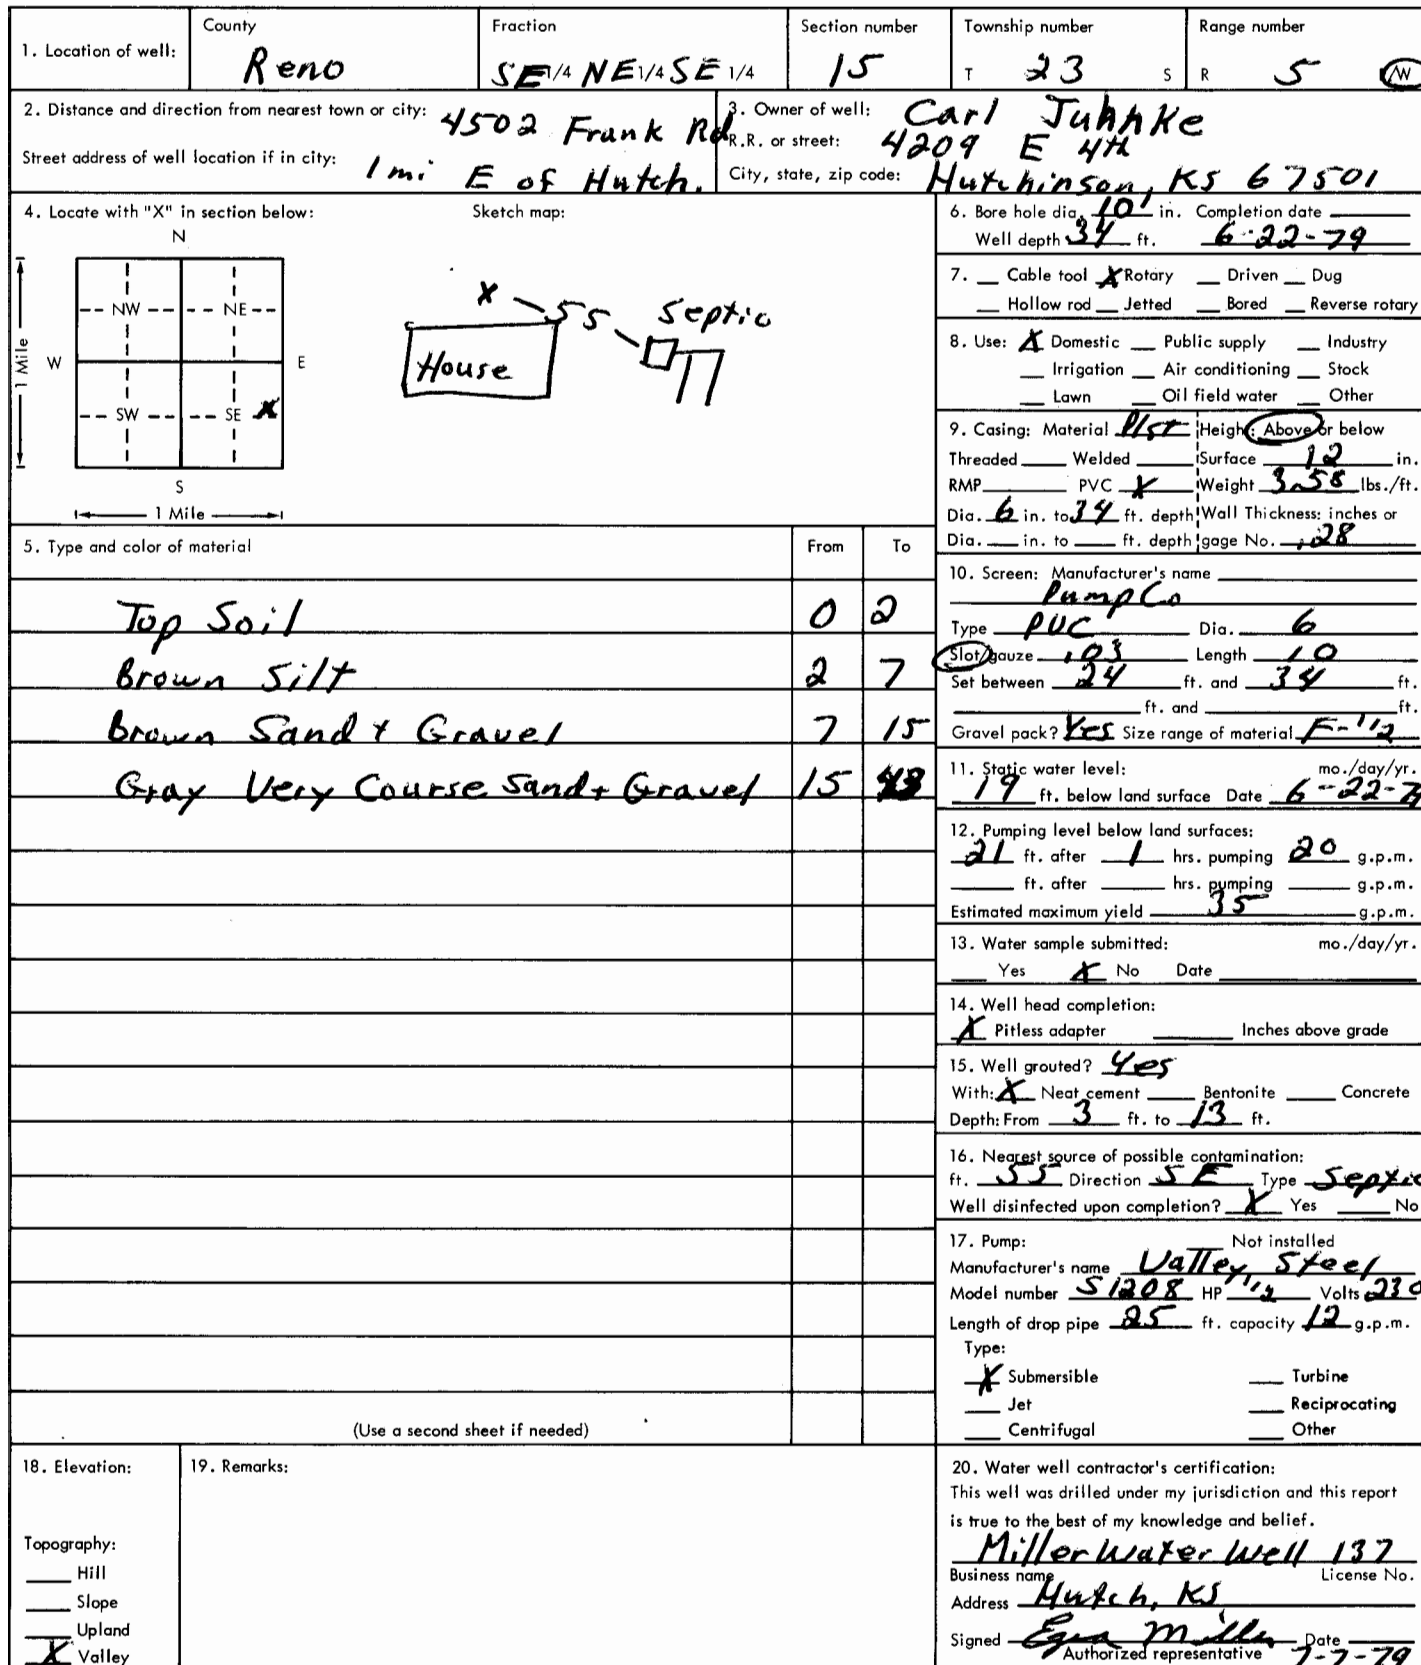 1. Location of well: County Reno Fraction SE 1/4 NE 1/4 SE 1/4 Section number 15 Township number T 23 S Range number R 5 W
2. Distance and direction from nearest town or city: 4502 Frank Rd
Street address of well location if in city: 1 mi E of Hutch.
3. Owner of well: Carl Juhnke
R.R. or street: 4209 E 4th
City, state, zip code: Hutchinson, KS 67501
4. Locate with "X" in section below: Sketch map:
N
NW NE
W E
SW SE X
S
1 Mile
1 Mile
X 55 Septic
House
5. Type and color of material From To
Top Soil 0 2
Brown Silt 2 7
Brown Sand + Gravel 7 15
Gray Very Course Sand + Gravel 15
(Use a second sheet if needed)
6. Bore hole dia. 10 in. Completion date
Well depth 34 ft. 6-22-79
7. Cable tool X Rotary Driven Dug
Hollow rod Jetted Bored Reverse rotary
8. Use: X Domestic Public supply Industry
Irrigation Air conditioning Stock
Lawn Oil field water Other
9. Casing: Material Plst Height: Above or below
Threaded Welded Surface 12 in.
RMP PVC X Weight 3.58 lbs./ft.
Dia. 6 in. to 34 ft. depth Wall Thickness: inches or
Dia. in. to ft. depth gage No. .28
10. Screen: Manufacturer's name
Pump Co
Type PVC Dia. 6
Slot/gauze .03 Length 10
Set between 24 ft. and 34 ft.
ft. and ft.
Gravel pack? Yes Size range of material F-1/2
11. Static water level: mo./day/yr.
19 ft. below land surface Date 6-22-79
12. Pumping level below land surfaces:
21 ft. after 1 hrs. pumping 20 g.p.m.
ft. after hrs. pumping g.p.m.
Estimated maximum yield 35 g.p.m.
13. Water sample submitted: mo./day/yr.
Yes X No Date
14. Well head completion:
X Pitless adapter Inches above grade
15. Well grouted? Yes
With: X Neat cement Bentonite Concrete
Depth: From 3 ft. to 13 ft.
16. Nearest source of possible contamination:
ft. 55 Direction SE Type Septic
Well disinfected upon completion? X Yes No
17. Pump: Not installed
Manufacturer's name Valley Steel
Model number S1208 HP 1/2 Volts 230
Length of drop pipe 25 ft. capacity 12 g.p.m.
Type:
X Submersible Turbine
Jet Reciprocating
Centrifugal Other
18. Elevation:
Topography:
Hill
Slope
Upland
X Valley
19. Remarks:
20. Water well contractor's certification:
This well was drilled under my jurisdiction and this report
is true to the best of my knowledge and belief.
Miller Water Well 137
Business name License No.
Address Hutch, KS
Signed Miller Date
Authorized representative 7-7-79